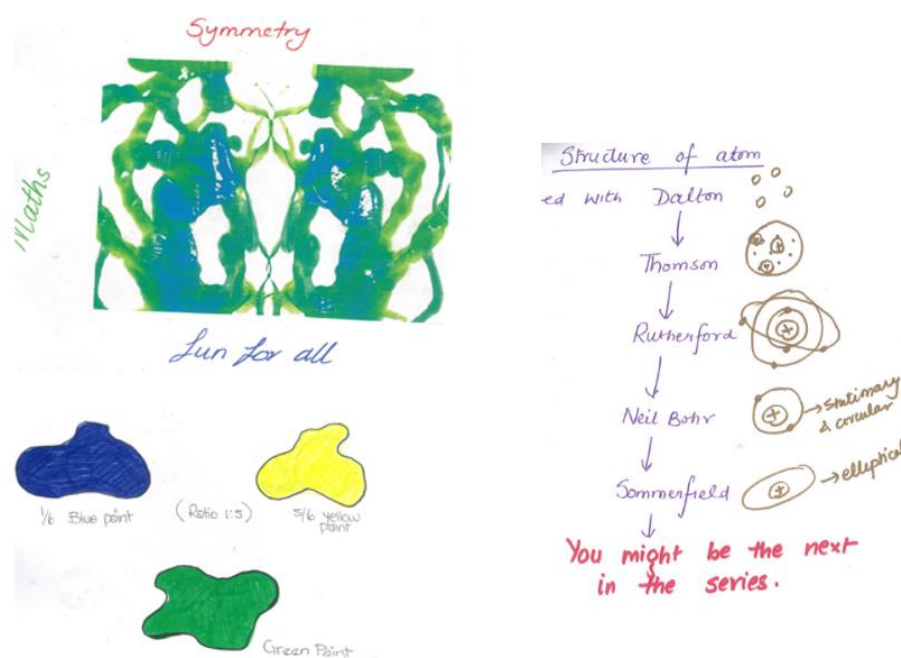 Symmetry
Maths
Fun for all
1/6 Blue paint
(Ratio 1:5)
5/6 Yellow
paint
Green Paint
Structure of atom
ed with Dalton
Thomson
Rutherford
Neil Bohr
→ stationary
& circular
Sommerfield
→ elliptical
You might be the next
in the series.